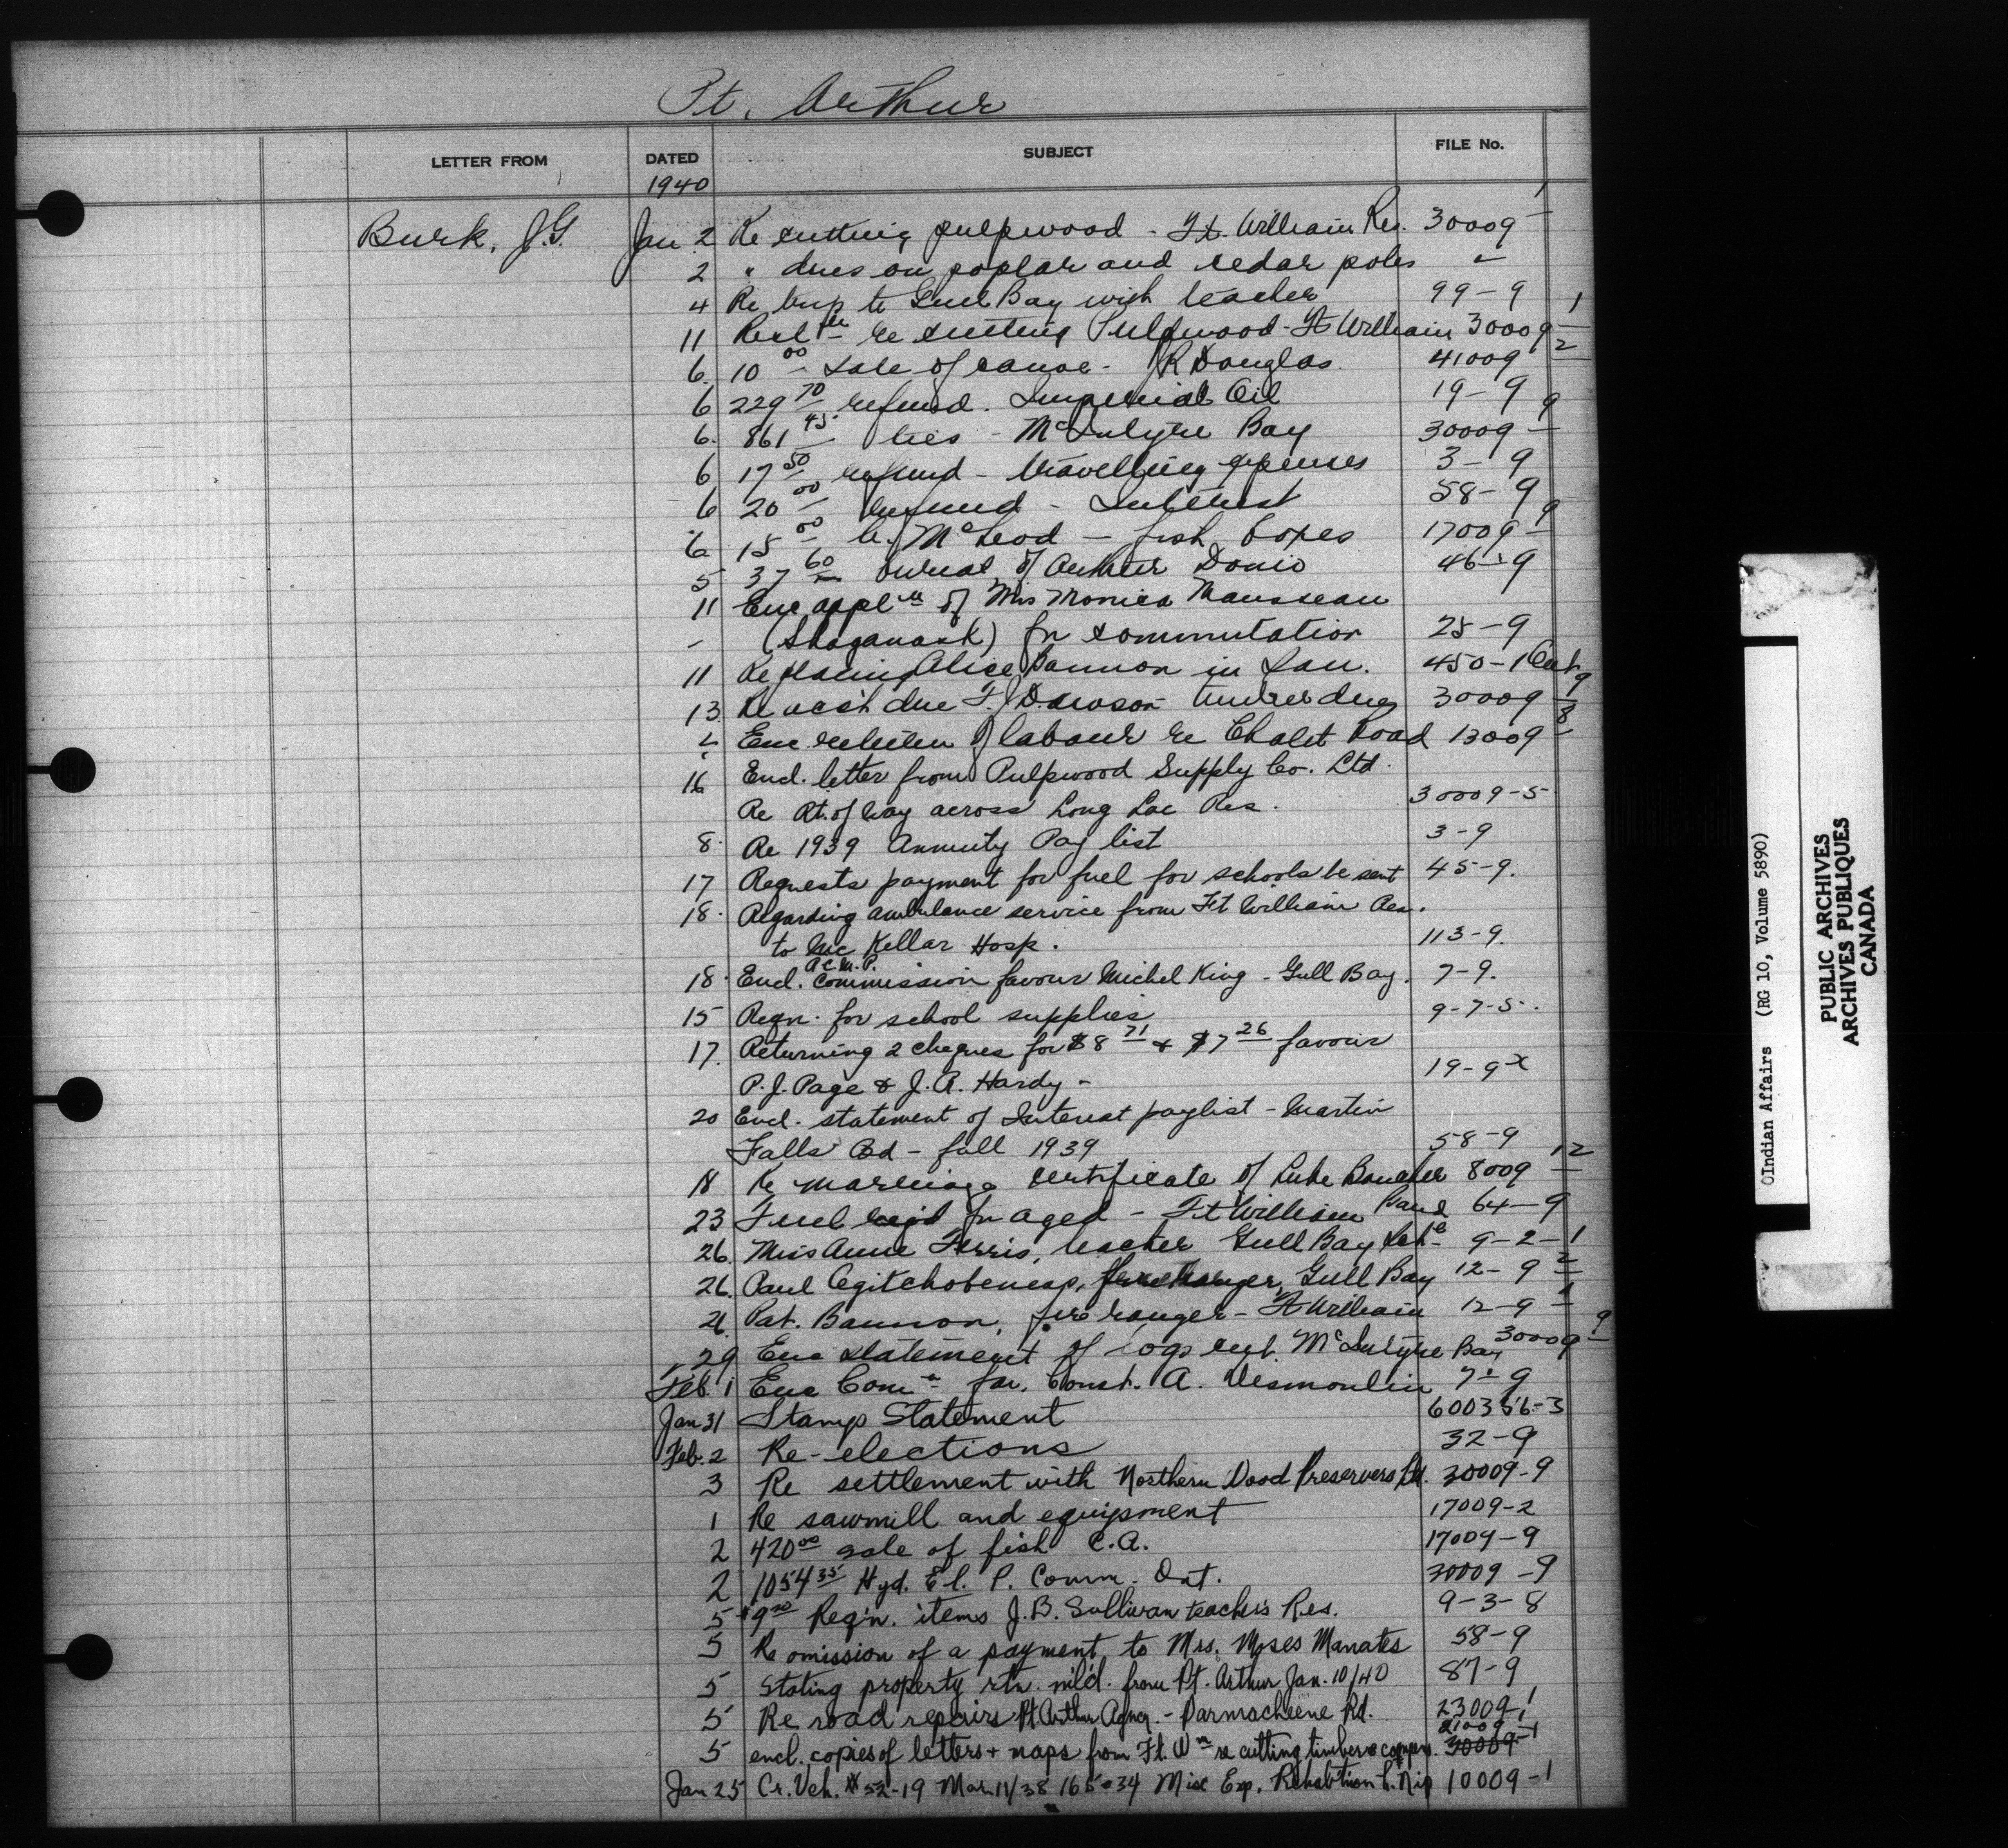 Pt. Arthur
LETTER FROM DATED SUBJECT FILE No.
1940
Burk, J.G. Jan 2 Re cutting pulpwood - Ft. William Res. 30009-1
2 " dues on poplar and cedar poles "
4 Re trip to Gull Bay with teacher 99-9
11 re cutting Pulpwood - Ft William 30009-1
6. 10 00 Sale of canoe - R Douglas. 41009-2
6 229 70 refund. Imperial Oil 19-9
6. 861 45 ties - McIntyre Bay 30009-9
6 17 50 refund - travelling expenses 3-9
6 20 00 refund - Interest 58-9
6 15 00 McLeod - fish boxes 17009-9
5 37 60 burial of Arthur 46-9
11 Enc appln of Mrs Monica Mausseau
- (Shaganash) for commutation 25-9
11 Re placing Alice Bannon in San. 450-1
13 Re acct due F.J. Dawson timber dues 30009-9
" Enc of labour re Chalet Road 13009-18
16 Encl. letter from Pulpwood Supply Co. Ltd.
Re Rt. of way across Long Lac Res. 30009-5
8. Re 1939 Annuity Pay list 3-9
17 Requests payment for fuel for schools be sent 45-9.
18. Regarding ambulance service from Ft William Res.
to McKellar Hosp. 113-9.
R.C.M.P.
18. Encl. Commission favour Michel King - Gull Bay. 7-9.
15 Reqn. for school supplies 9-7-5.
17. Returning 2 cheques for $8 71 & $7 26 favour
P.J. Page & J.A. Hardy - 19-9x
20 Encl. statement of Interest paylist - Martin
Falls Bd - fall 1939 58-9
18 Re marriage certificate of Luke Boucher 8009-12
23 Fuel req'd for aged - Ft William Band 64-9
26. Miss Anne Ferris, teacher Gull Bay 9-2-1
26. Paul fire Ranger, Gull Bay 12-9-2
26. Pat. Bannon, fire ranger - Ft William 12-9-1
29 Enc statement of logs cut. McIntyre Bay 30009-9
Feb. 1 Enc Comn for. Const. A. Desmoulin 7-9
Jan 31 Stamp Statement 600356-3
Feb. 2 Re-elections 32-9
3 Re settlement with Northern Wood Preservers Ltd. 30009-9
1 Re sawmill and equipment 17009-2
2 420 00 sale of fish C.A. 17009-9
2 1054 35 Hyd. El. P. Comm. Ont. 30009-9
5 $9 20 Reqn. items J.B. Sullivan teacher's Res. 9-3-8
5 Re omission of a payment to Mrs. Moses Manates 58-9
5 Stating property rtn. mld. from Pt. Arthur Jan. 10/40 87-9
5 Re road repairs Pt. Arthur Agncy. - Parmacheene Rd. 23009-1
21009-1
5 encl. copies of letters + maps from Ft. Wm re cutting timber 30009-
Jan 25 Cr. Vch. # 52-19 Mar. 11/38 165.34 Misc Exp. 10009-1
OIndian Affairs (RG 10, Volume 5890)
PUBLIC ARCHIVES
ARCHIVES PUBLIQUES
CANADA